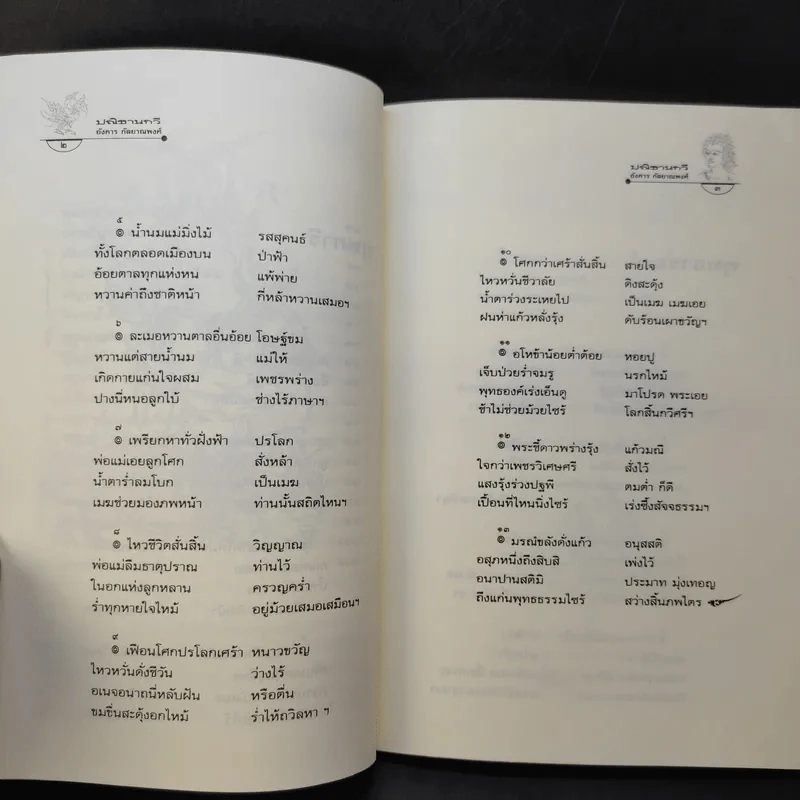 ปณิธานกวี
อังคาร กัลยาณพงศ์
๒
๕
๏ น้ำนมแม่มิ่งไม้ รสสุคนธ์
ทั้งโลกตลอดเมืองบน ป่าฟ้า
อ้อยตาลทุกแห่งหน แพ้พ่าย
หวานค่าถึงชาติหน้า กี่หล้าหวานเสมอฯ
๖
๏ ละเมอหวานตาลอื่นอ้อย โอษฐ์ขม
หวานแต่สายน้ำนม แม่ให้
เกิดกายแก่นใจผสม เพชรพร่าง
ปางนี่หนอลูกไบ้ ช่างไร้ภาษาฯ
๗
๏ เพรียกหาทั่วฝั่งฟ้า ปรโลก
พ่อแม่เอยลูกโศก สั่งหล้า
น้ำตาร่ำลมโบก เป็นเมฆ
เมฆช่วยมองภพหน้า ท่านนั้นสถิตไหนฯ
๘
๏ ไหวชีวิตสั่นสิ้น วิญญาณ
พ่อแม่ลืมธาตุปราณ ท่านไว้
ในอกแห่งลูกหลาน ครวญคร่ำ
ร่ำทุกหายใจไหม้ อยู่ม้วยเสมอเสมือนฯ
๙
๏ เฟือนโศกปรโลกเศร้า หนาวขวัญ
ไหวหวั่นดั่งชีวัน ว่างไร้
อเนจอนาถนี่หลับฝัน หรือตื่น
ขมขื่นสะดุ้งอกไหม้ ร่ำไห้ถวิลหา ฯ
ปณิธานกวี
อังคาร กัลยาณพงศ์
๓
๑๐
๏ โศกกว่าเศร้าสั่นสิ้น สายใจ
ไหวหวั่นชีวาลัย ดิ่งสะดุ้ง
น้ำตาร่วงระเหยไป เป็นเมฆ เมฆเอย
ฝนห่าแก้วหลั่งรุ้ง ดับร้อนเผาขวัญฯ
๑๑
๏ อโหข้าน้อยต่ำต้อย หอยปู
เจ็บป่วยร่ำจมรู นรกไหม้
พุทธองค์เร่งเอ็นดู มาโปรด พระเอย
ช้าไม่ช่วยม้วยไซร้ โลกสิ้นกวีศรีฯ
๑๒
๏ พระชี้ดาวพร่างรุ้ง แก้วมณี
ใจกว่าเพชรวิเศษศรี สั่งไว้
แสงรุ้งร่วงปฐพี ตมต่ำ ก็ดี
เปื้อนที่ไหนนิ่งไซร้ เร่งซึ้งสัจจธรรมฯ
๑๓
๏ มรณ์ขลังดั่งแก้ว อนุสสติ
อสุภหนึ่งถึงสิบสิ เพ่งไว้
อนาปานสติมิ ประมาท มุ่งเทอญ
ถึงแก่นพุทธธรรมไซร้ สว่างสิ้นภพไตร